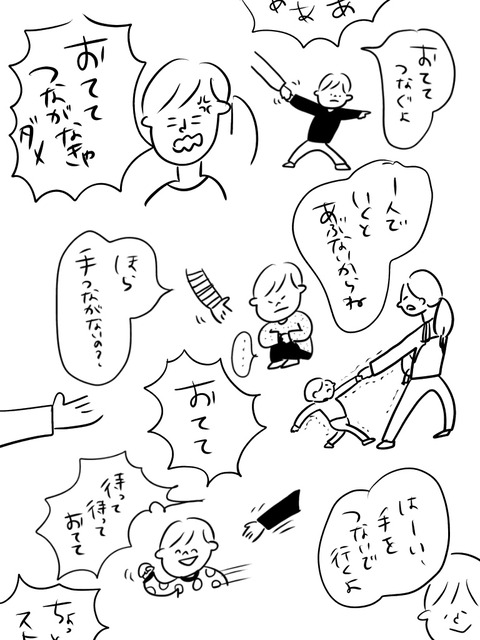 あああ
おてて
つなぐよ
おてて
つながなきゃ
ダメ
1人で
いくと
あぶないからね
ほら
手つながないの?、
・・・
おてて
待って
待って
おてて
はーい、
手を
つないで
行くよ
ちょっと
スト